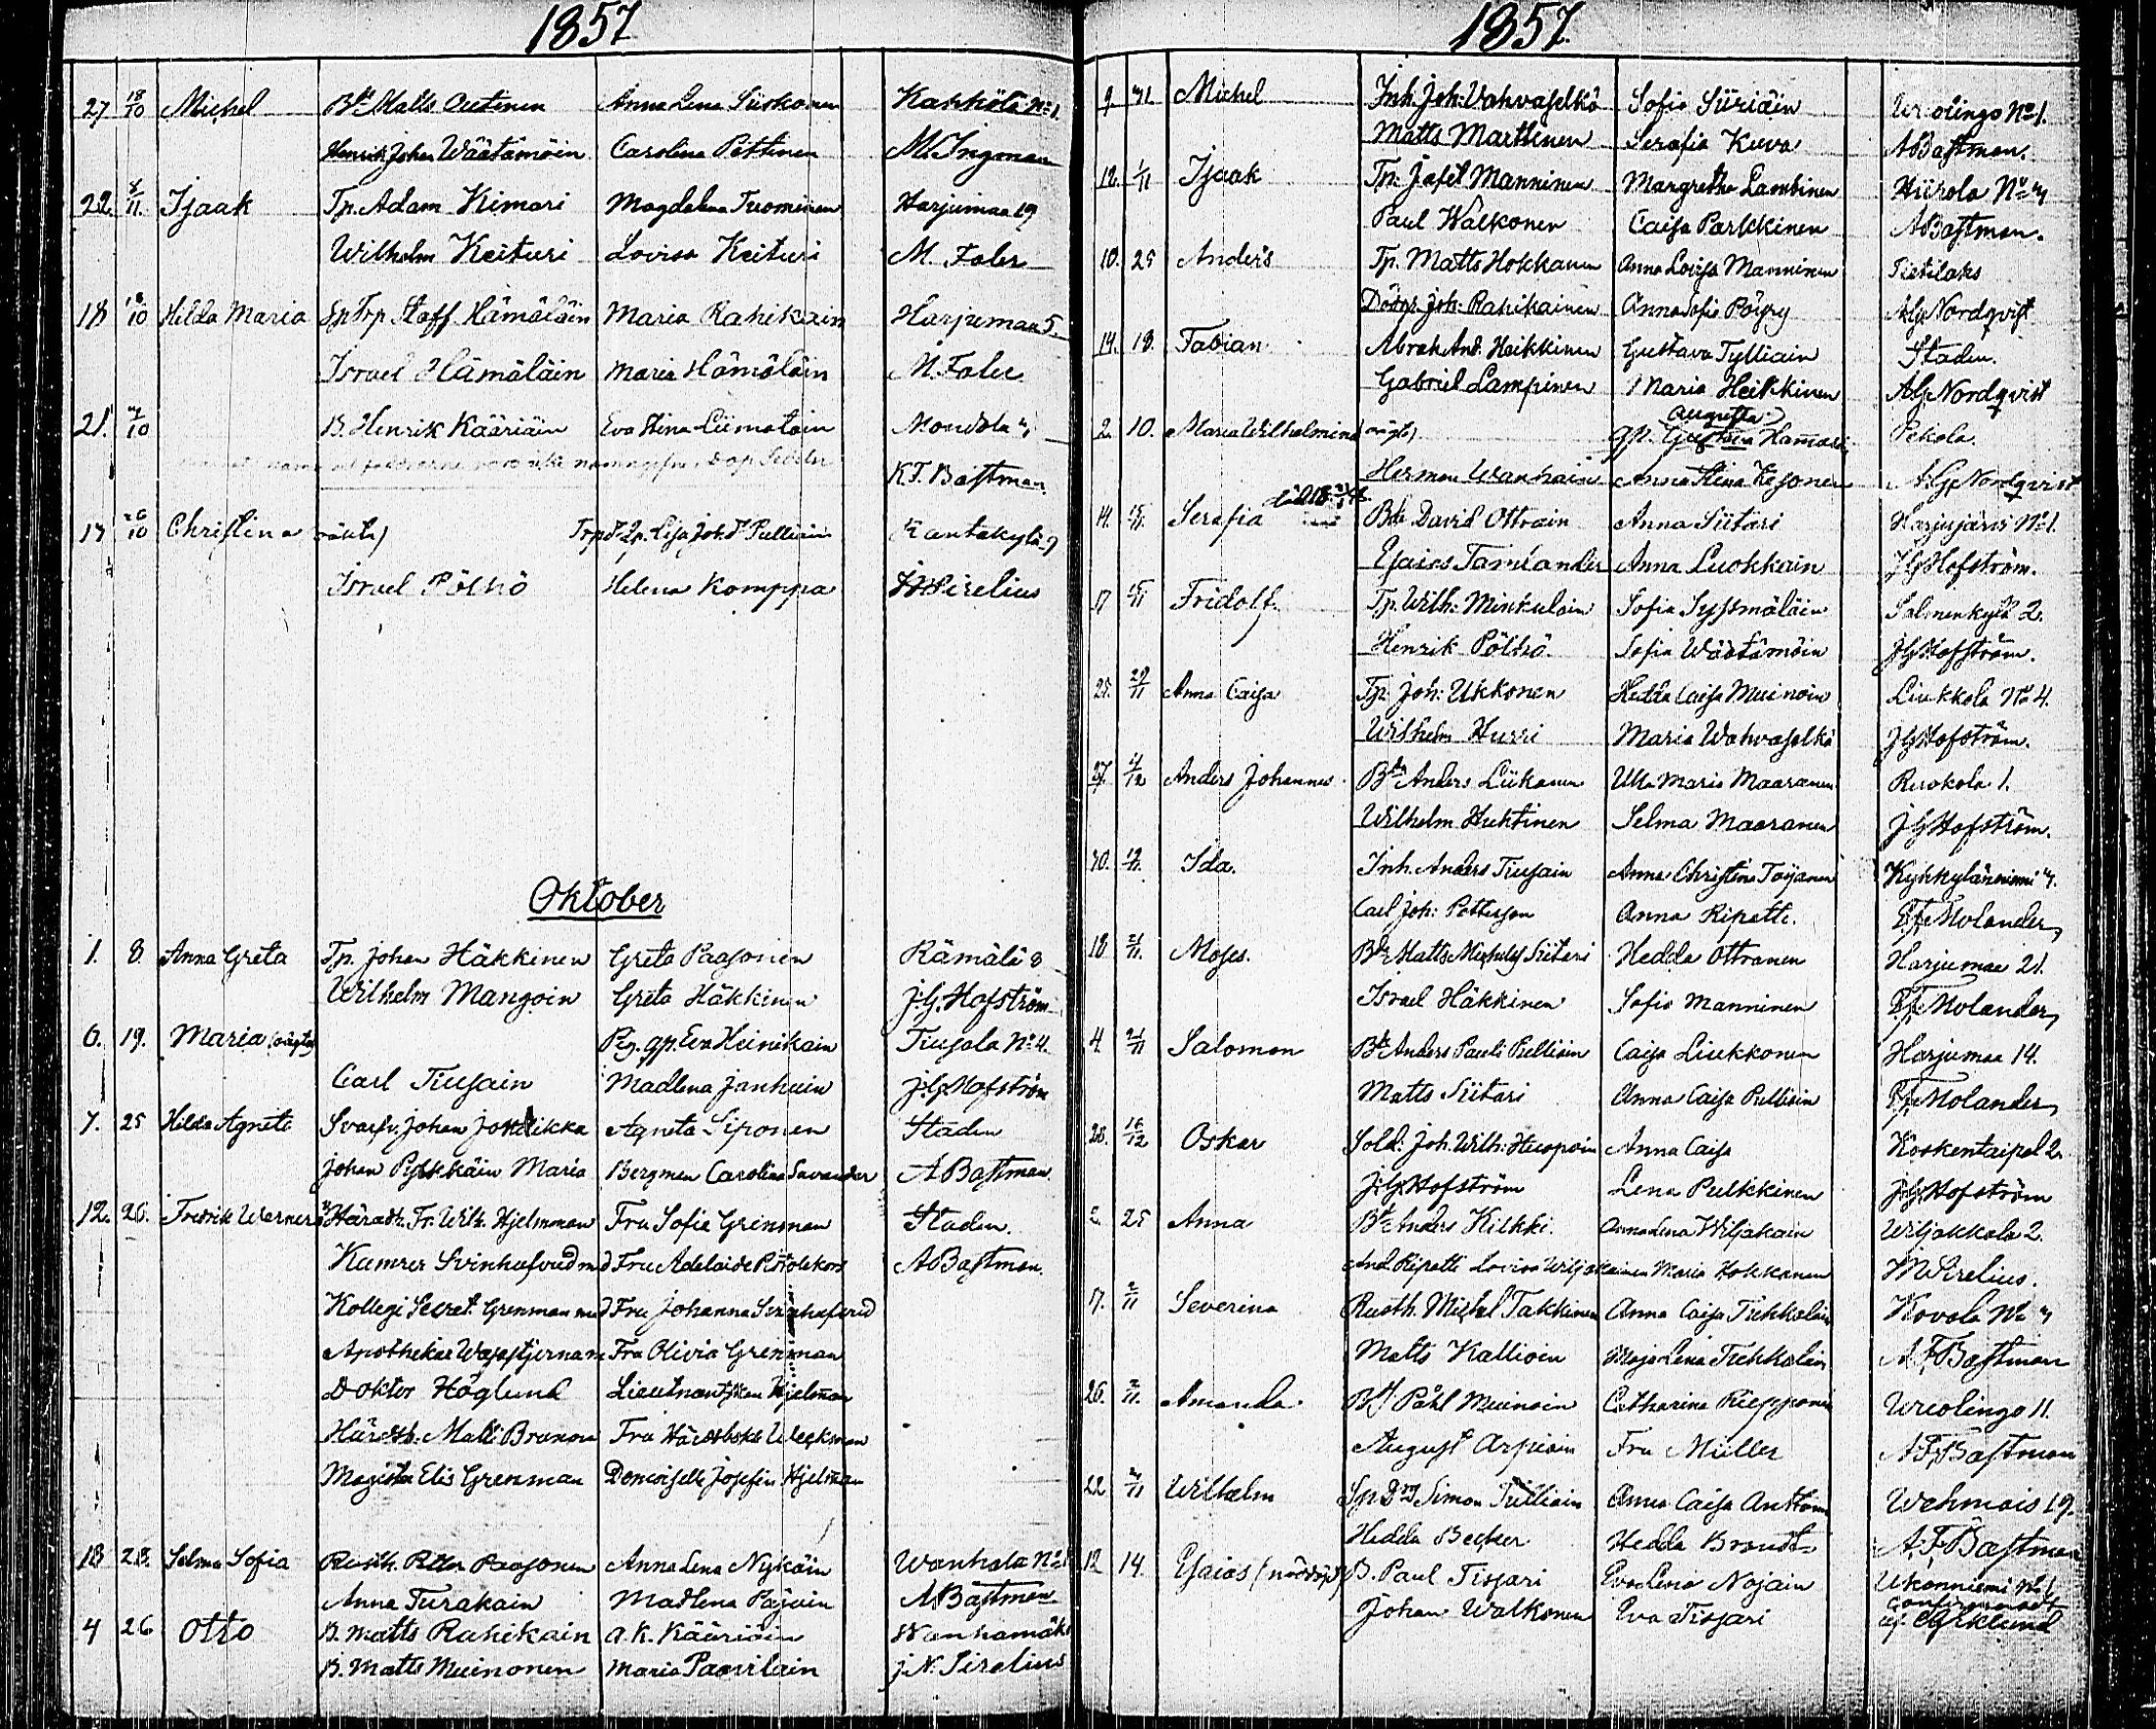 1857
27 18/10 Michel Bd Matts Autinen Anna Lena Siiskonen Kahkölä No 1
Henrik Johan Wäätämöin Carolina Pöttinen M. Ingman
22. 8/11. Isaak Tp. Adam Kimari Magdalena Tuominen Harjumaa 19
Wilhelm Keituri Lovisa Keituri M. Faler
18 18/10 Hilda Maria Sp Trp Staff. Hämäläin Maria Rahikain Harjumaa 5
Israel Hämäläin Maria Hämäläin M. Faler
21. 4/10 B. Henrik Kääriäin Eva Stina Liimatain
K.F. Bastman
17 26/10 Christina oäkta) Lisa Joh. d. Pulliain Kantakylä
Israel Pöllhö Helena Komppa Sirelius
Oktober
1. 8. Anna Greta Tp. Johan Häkkinen Greta Paasonen Rämälä 8
Wilhelm Mangoin Greta Häkkinen J.G. Hofström
6. 19. Maria (oägta) Pig. gp. Eva Heinikain Tiusala No 4.
Carl Tiusain Madlena Janhuin J.G. Hofström
7. 25 Hilda Agneta Svarfv. Johan Agneta Siponen Staden
Johan Maria Bergman Carolina Savander A Bastman
12. 26. Fredrik Werner Häradsh. Fr. Wilh. Hjelmman Fru Sofia Grenman Staden.
Kamrer Svinhufvud md Fru Adelaide A Bastman.
Kollegi Secret. Grenman med Fru Johanna Svinhufvud
Apothekar Wasastjerna m Fru Olivia Grenman
Doktor Höglund Lieutnantskan Hjelman
Häradsh. Malt Brunou Fru
Magister Elis Grenman Demoiselle Josefin Hjelman
18 28. Selma Sofia Rusth. Petter Paasonen Anna Lena Nykäin Wanhala No 1
Anna Turakain Madlena Pajuin A Bastman
4 26 Otto B. Matts Rahikain A. K. Kääriäin Wanhamäki
B. Matts Muinonen Maria Paavilain J.N. Sirelius
1857.
9. Michel Inh. Joh. Vahvaselkä Sofia Siiriäin Ureolingo No 1.
Matts Marttinen Serafia Kuva A Bastman.
12. 1/11 Isaak Tp. Jafet Manninen Margretha Lambinen Hiirola No 4
Paul Walkonen Caisa Parkkinen A Bastman.
10. 25 Anders Tp. Matts Hokkanen Anna Lovisa Manninen Pietilaks
Joh. Rahikainen Anna Sofia Pöyry A.G. Nordqvist
14. 18. Fabian Abrah. And. Heikkinen Gustava Tylliain Staden.
Gabriel Lampinen Maria Heikkinen A.G. Nordqvist
Augusta
2. 10. Maria Wilhelmina oägt) gp. Gustava Pekola.
Herman Wanhain Anna Stina Kosonen A.G. Nordqvist
14. 15/11. Serafia Bde David Ottrain Anna Siitari Harjujärvi No 1.
Esaias Tamlander Anna Luokkain J G Hofström.
17 15/11 Fridolf. Tp. Wilh. Minkulain Sofia Syssmäläin Salmenkylä 2.
Henrik Pöllhö. Sofia Wäätämöin J G Hofström.
25. 29/11 Anna Caisa Tp. Joh. Ukkonen Hedda Caisa Muinoin Liukkola No 4.
Wilhelm Hurri Maria Wahvaselkä J G Hofström.
27. 4/12 Anders Johannes Bde Anders Liikanen Ulla Maria Maaranen Ruokola 1.
Wilhelm Huhtinen Selma Maaranen J G Hofström.
30. Ida. Inh. Anders Tiusain Anna Christina Töyanen Kyhkylänniemi
Carl Joh. Pettersson Anna Ripatti. Molander
18 Moses. Bde Matts Michelss. Siitari Hedda Ottranen Harjumaa 21.
Israel Häkkinen Sofia Manninen Molander
4 21/11 Salomon Bde Anders Paulss Pulliain Caisa Liukkonen Harjumaa 14.
Matts Siitari Anna Caisa Pulliain Molander
28. 16/12 Oskar Sold. Joh. Wilh. Huopoin Anna Caisa Koskentaipal 2.
J.G. Hofström Lena Pulkkinen J.G. Hofström
25 Anna Bde Anders Kilkki. Anna Lena Wiljakain Wiljakkala 2.
And. Ripatti Lovisa Wiljakainen Maria Hokkanen Sirelius.
17. Severina Rusth. Michel Takkinen Anna Caisa Tuhkalain Kovala No 4
Matts Kallioin Maja Lena Tuhkalain A. F. Bastman
26. Amanda. Påhl Muinoin Catharina Riepponen Ureolingo 11.
August Arpiain Fru Müller A. F. Bastman
22 Wilhelm Simon Pulliain Anna Caisa Anttonen Wehmais 19.
Hedda Becker Hedda Brandt A. F. Bastman
12 14. Esaias (nöddöpt) B. Paul Tissari Eva Lena Nojain Ukonniemi No 1
Johan Walkonen Eva Tissari confirmeradt af Eklund